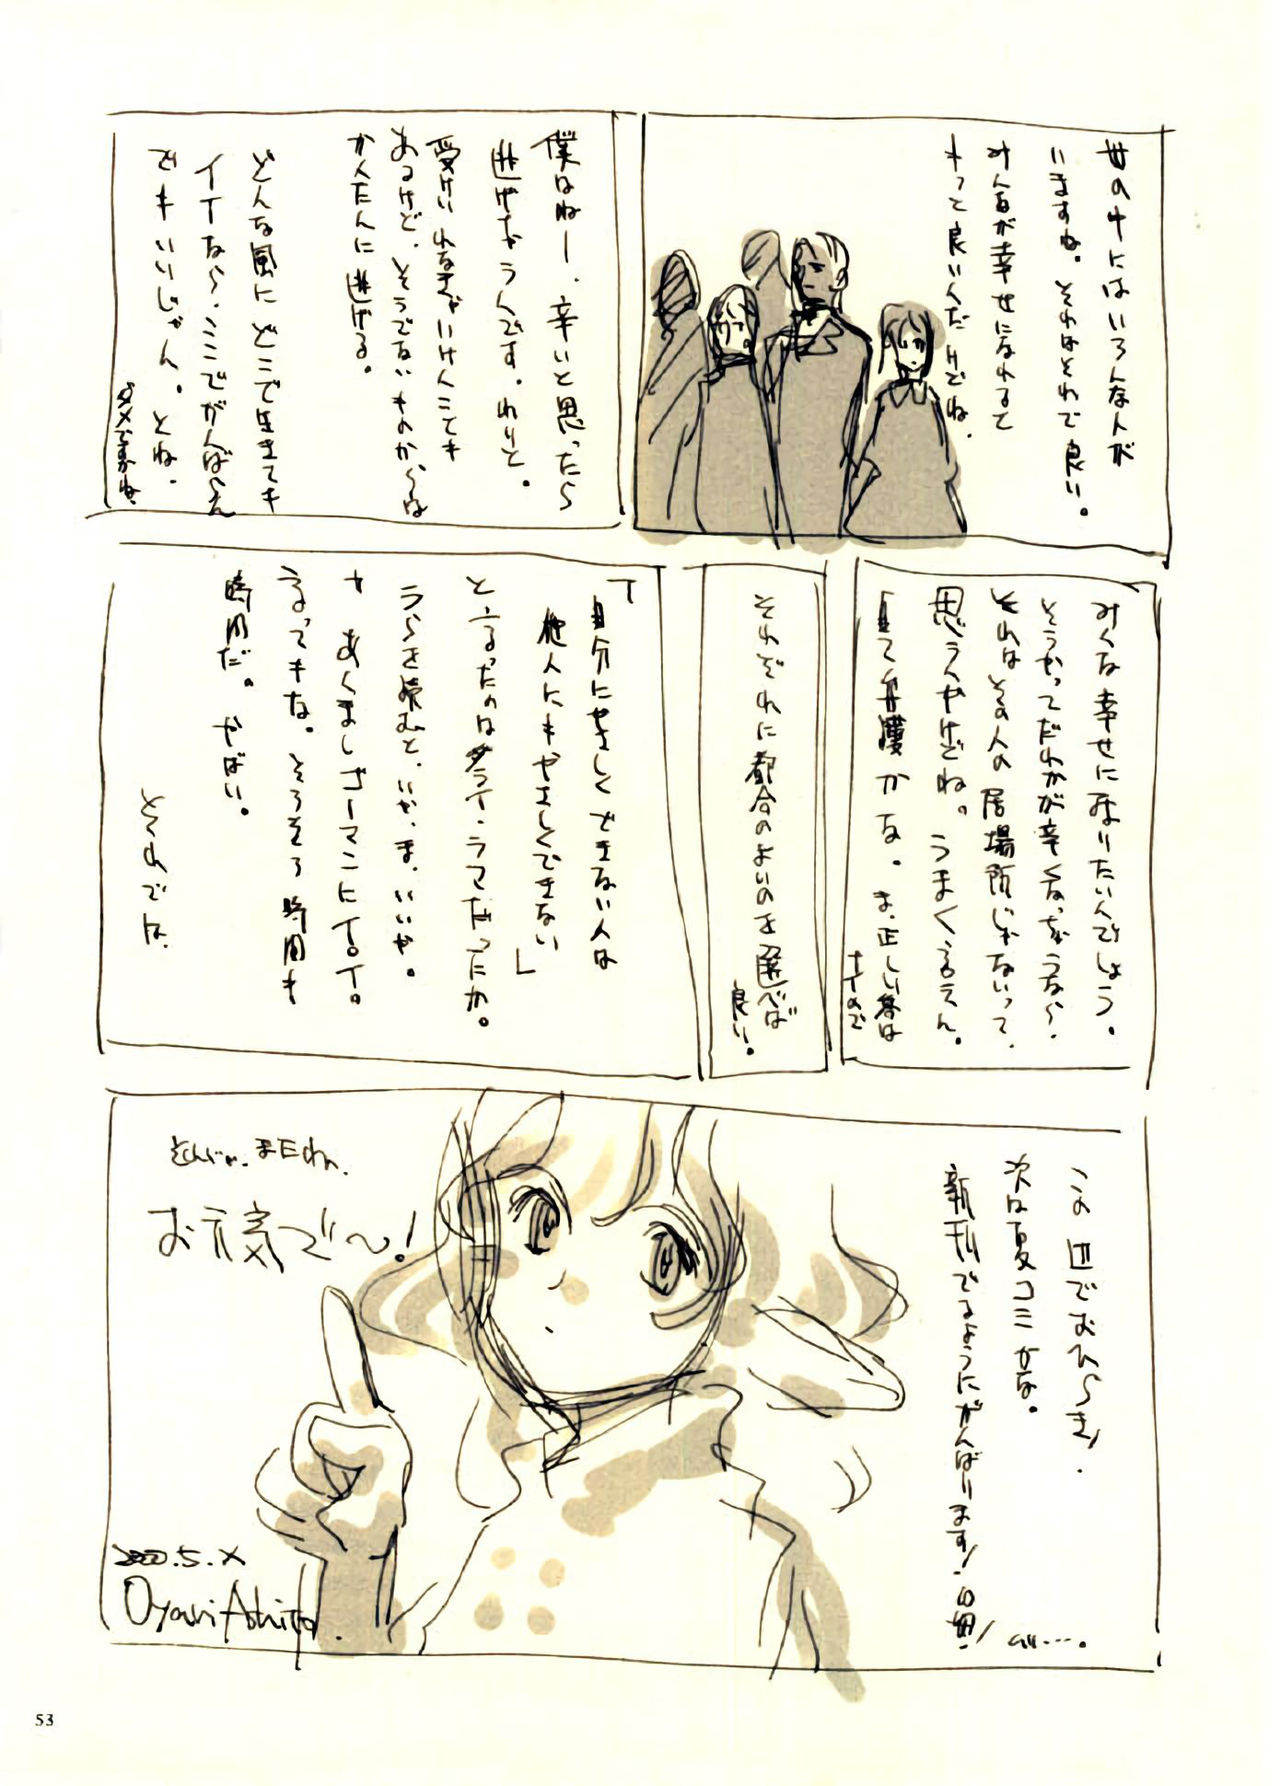 世の中にはいろんな人が
いますね。それはそれで良い。
みんなが幸せになれると
もっと良いんだけどね、
僕はねー、辛いと思ったら
逃げちゃうんです。わりと。
受けいれなきゃいけんことも
あるけど、そうでないものからは
かんたんに逃げる。
どんな風にどこで生きても
イイなら、ここでがんばらん
でもいいじゃん。とね。
ダメですかね、
みんな幸せになりたいんでしょう。
そうやってだれかが辛くなっちゃうなら、
それはその人の居場所じゃないって、
思うんやけどね。うまく言えん。
自己弁護かな。ま、正しい答は
ナイので
それぞれに都合のよいのを選べば
良い。
「自分にやさしくできない人は
他人にもやさしくできない」
と言ったのはダライ・ラマだったか。
うらを読むと、いや、ま、いいや。
あんましゴーマンにイロイロ
言ってもな。そろそろ時間も
時間だ。やばい。
それでは、
この辺でおひらき!
次は夏コミかな。
新刊でるようにがんばります!
そんじゃ、またね、
お元気で〜!
2000.5.X
Oyari Ashito.
53